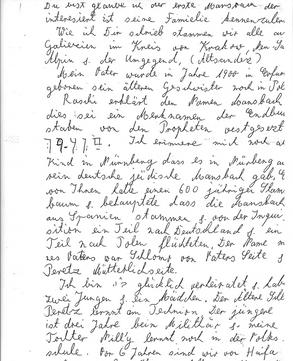 Du bist glaube ich der erste Mansbach der
interessiert ist seine Familie kennenzulern
Wie ich Dir schrieb stammen wir alle au
Galizien im Kreis von Krakow, den
u. der Umgegend, (Altsandez)
Mein Vater wurde in Jahre 1900 in Erfur
geboren sein älteren Geschwister noch in Pol
Raschi erklärt den Namen Mansbach
dies sei ein Merknamen der Endbuc
staben von den Propheten
Ich erinnere mich noch a
Kind in Nürnberg dass es in Nürnberg a
sein deutsche jüdische Mansbach gab,
von Ihnen hatte einen 600 jährigen Stam
baum u. behauptete dass die Mansbach
aus Spanien stammen u. von der Inqui
sition ein Teil nach Deutschland u. ein
Teil nach Polen flüchteten. Der Name m
nes Vaters war Schlomo von Vaters Seite u
Peretz Mütterlichseite.
Ich bin glücklich verheiratet u. hab
zwei Jungen u. ein Mädchen. Der Ältere
Peretz lernt am Technion. Der jüngere
ist drei Jahre beim Militär u. meine
Tochter Milly lernt noch in der Volks
schule. Vor 6 Jahren sind wir von Haifa